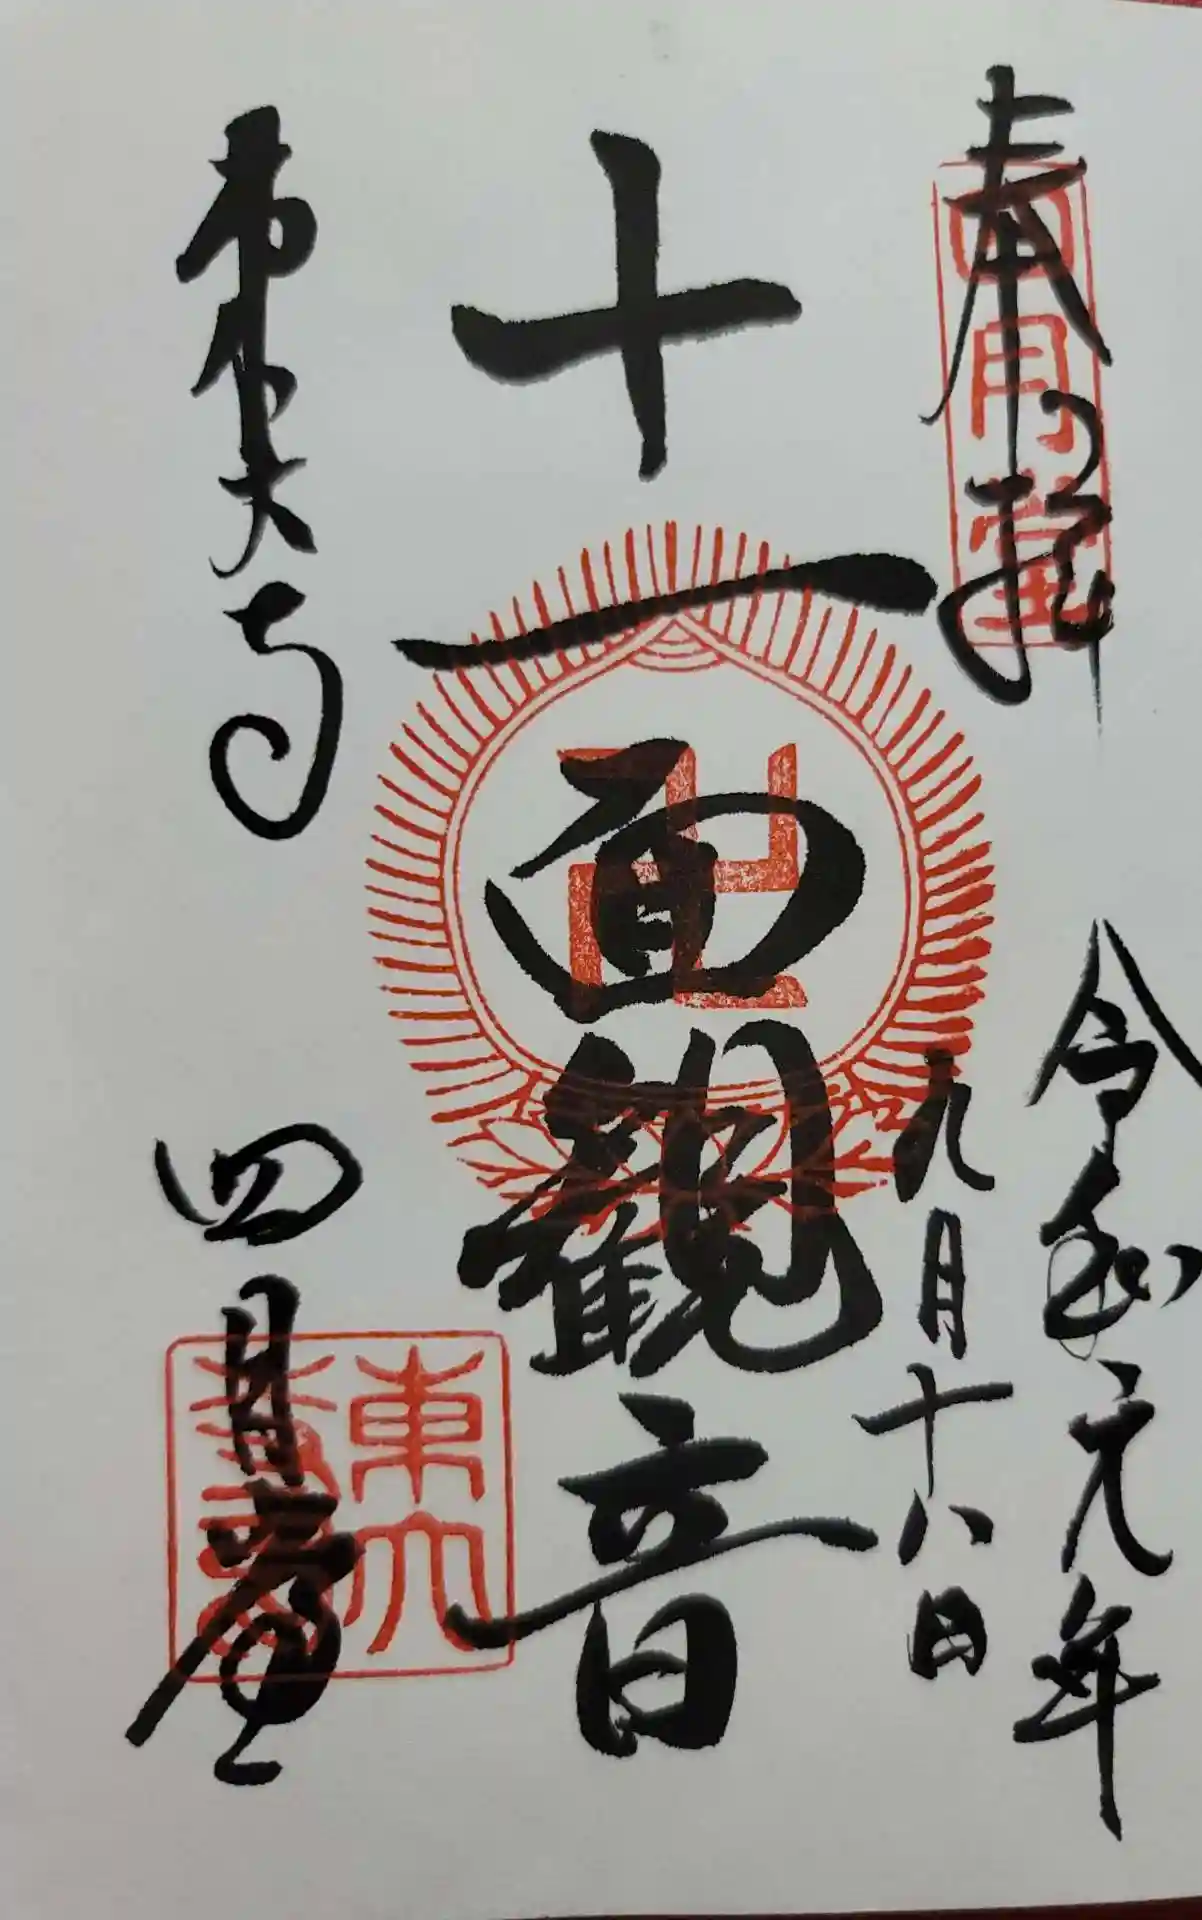 奉拝
四月堂
令和元年
九月十八日
十一面観音
東大寺
四月堂
東大